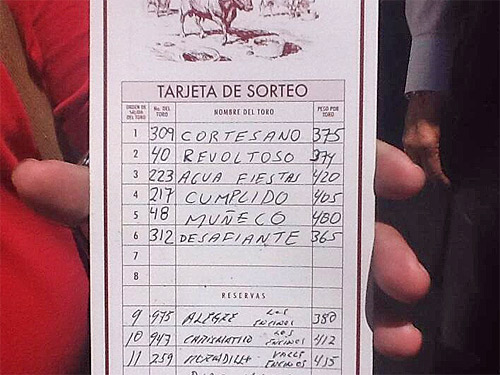 TARJETA DE SORTEO
ORDEN DE SALIDA DEL TORO No. DEL TORO NOMBRE DEL TORO PESO POR TORO
1 309 CORTESANO 375
2 40 REVOLTOSO 374
3 223 AGUA FIESTAS 420
4 217 CUMPLIDO 405
5 48 MUÑECO 400
6 312 DESAFIANTE 365
7
8
RESERVAS
9 975 ALEGRE LOS ENCINOS 380
10 947 CARISMATICO LOS ENCINOS 412
11 259 VALLE ENCINOS 415